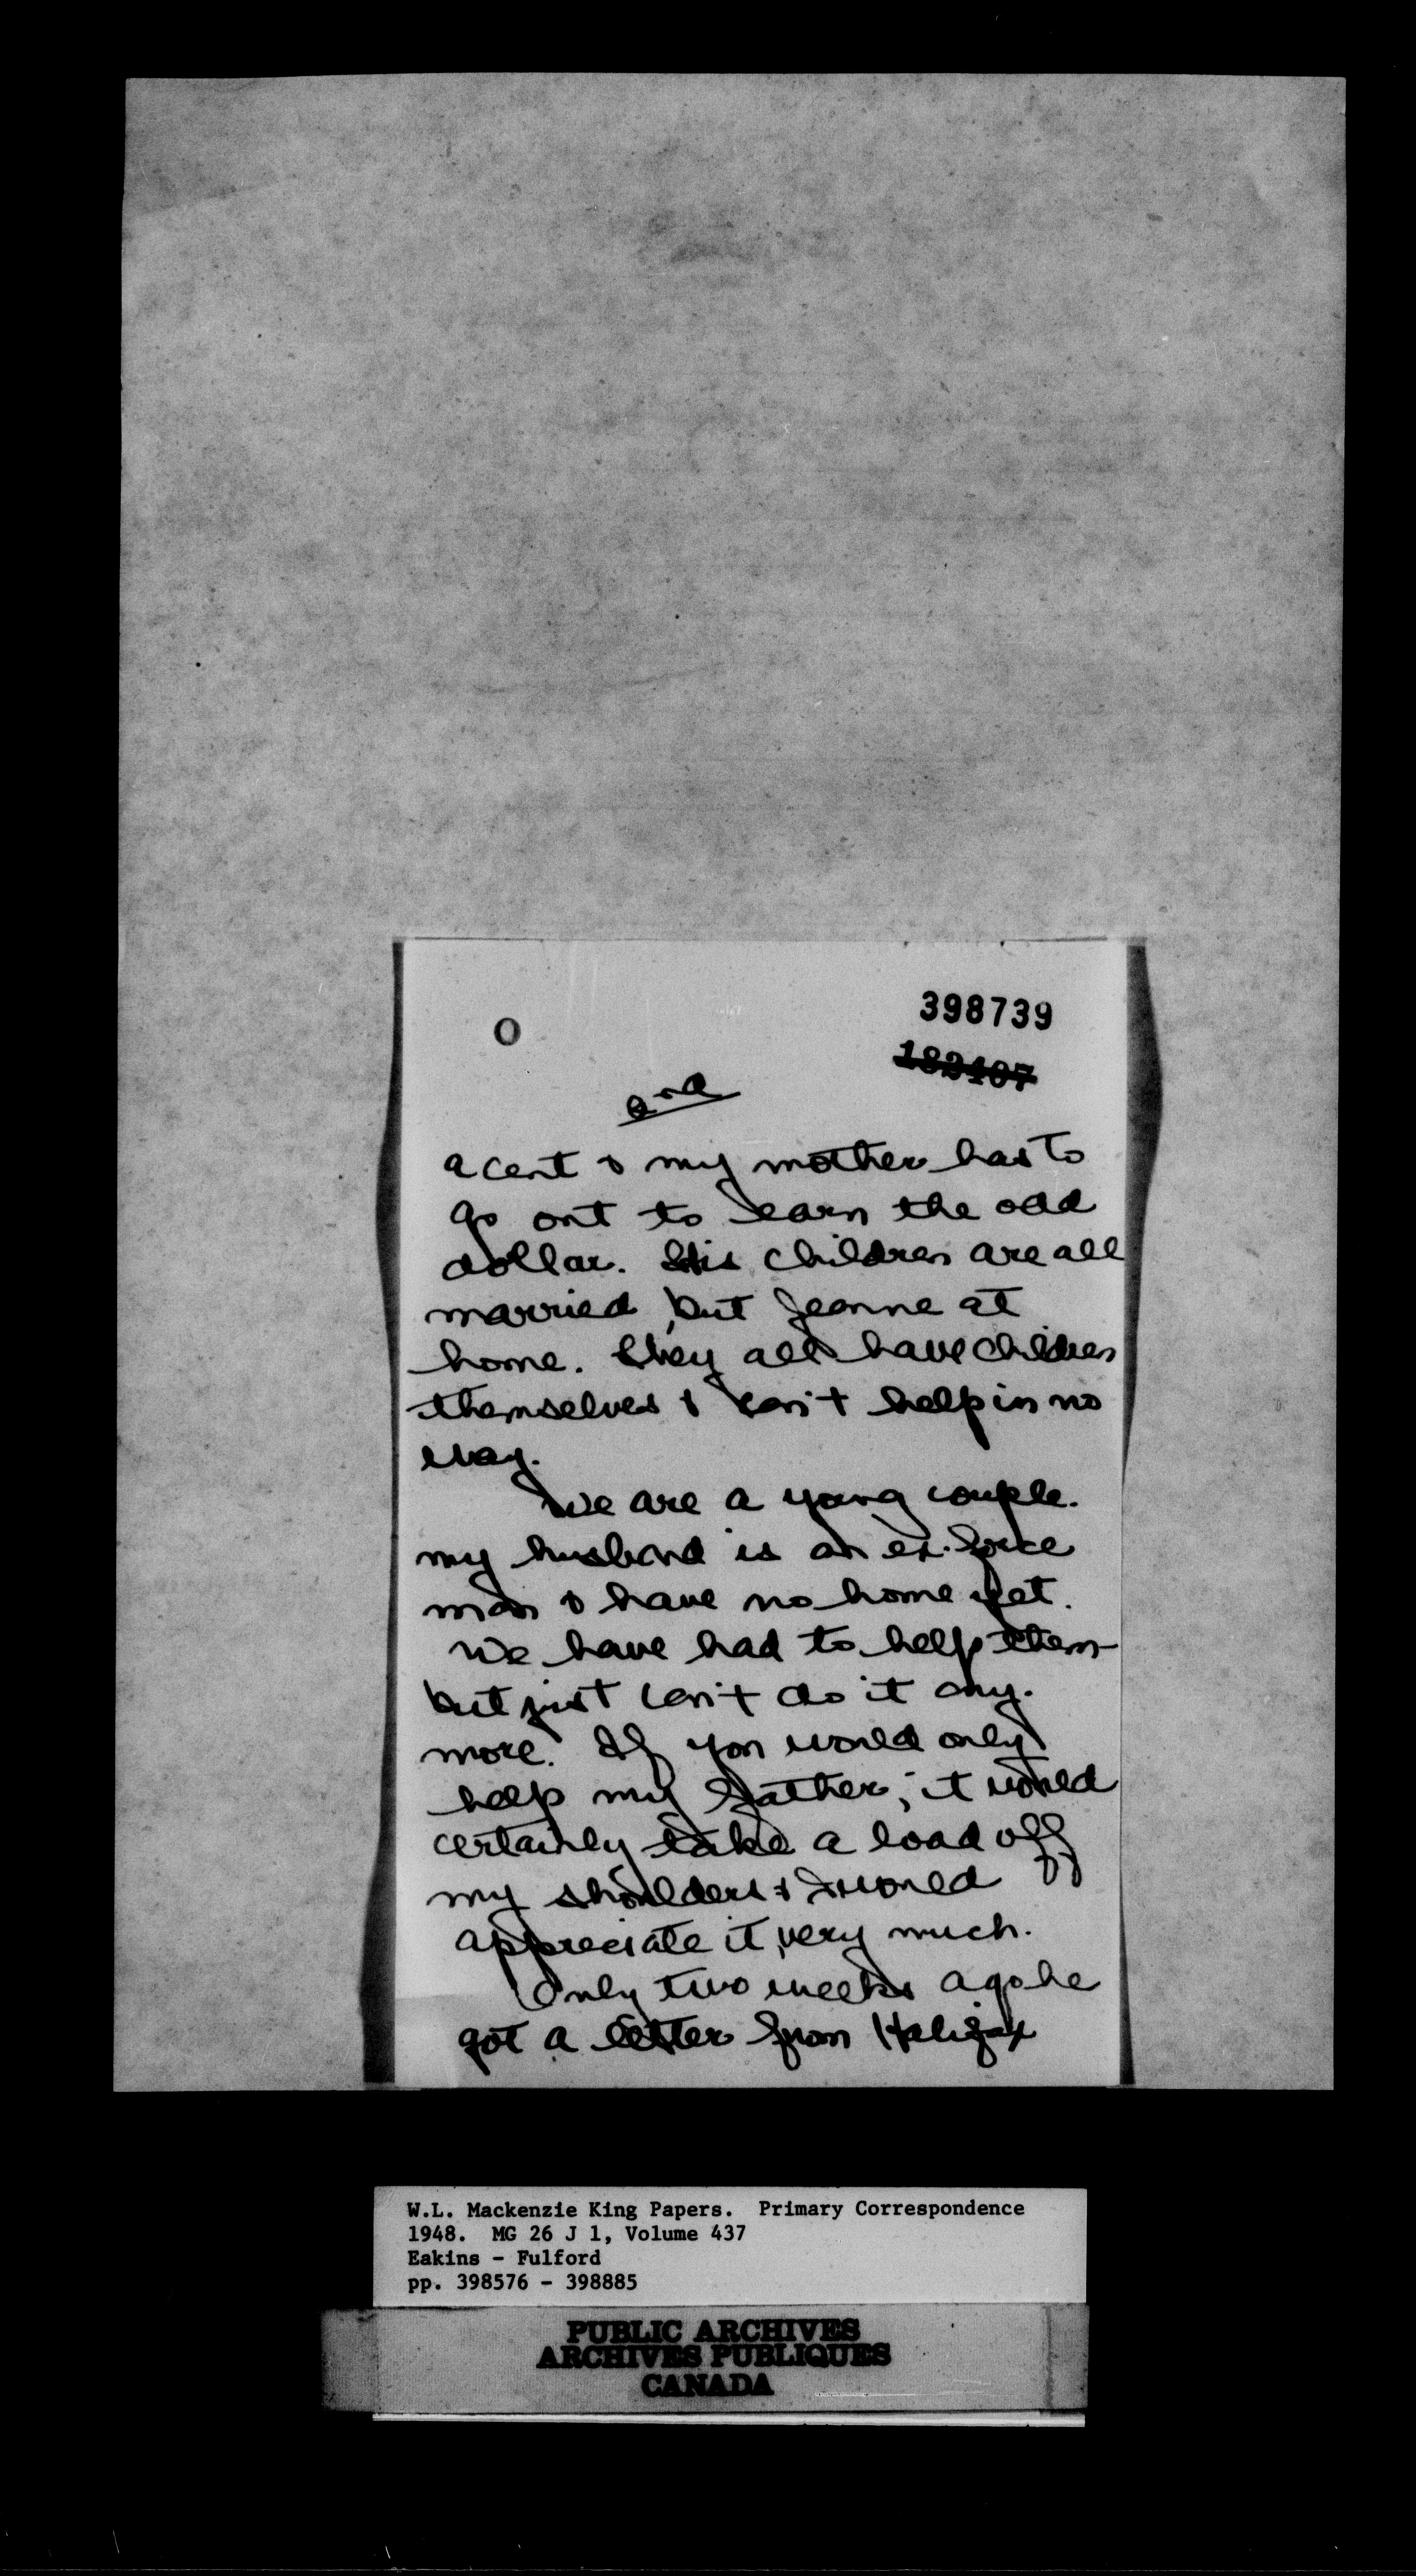 398739
182107
a cent & my mother has to
go out to earn the odd
dollar. His children are all
married, but Jeanne at
home. They all have children
themselves & can't help in no
way.
We are a young couple.
my husband is an ex. force
man & have no home yet.
We have had to help them
but just can't do it any.
more. If you would only
help my father, it would
certainly take a load off
my shoulders & I would
appreciate it, very much.
Only two weeks ago he
got a letter from Halifax
W.L. Mackenzie King Papers. Primary Correspondence
1948. MG 26 J 1, Volume 437
Eakins - Fulford
pp. 398576 - 398885
PUBLIC ARCHIVES
ARCHIVES PUBLIQUES
CANADA